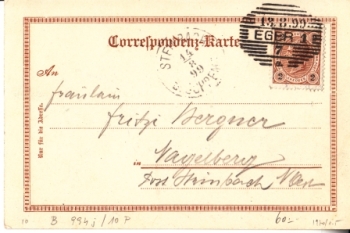 Correspondenz-Karte
13.8.99
EGER 1
14
8
99
An
Fräulein
Fritzi Bergner
Nur für die Adresse.
in
Nagelberg
Post Steinbach N.Oest
B 994j/10 P
60.-